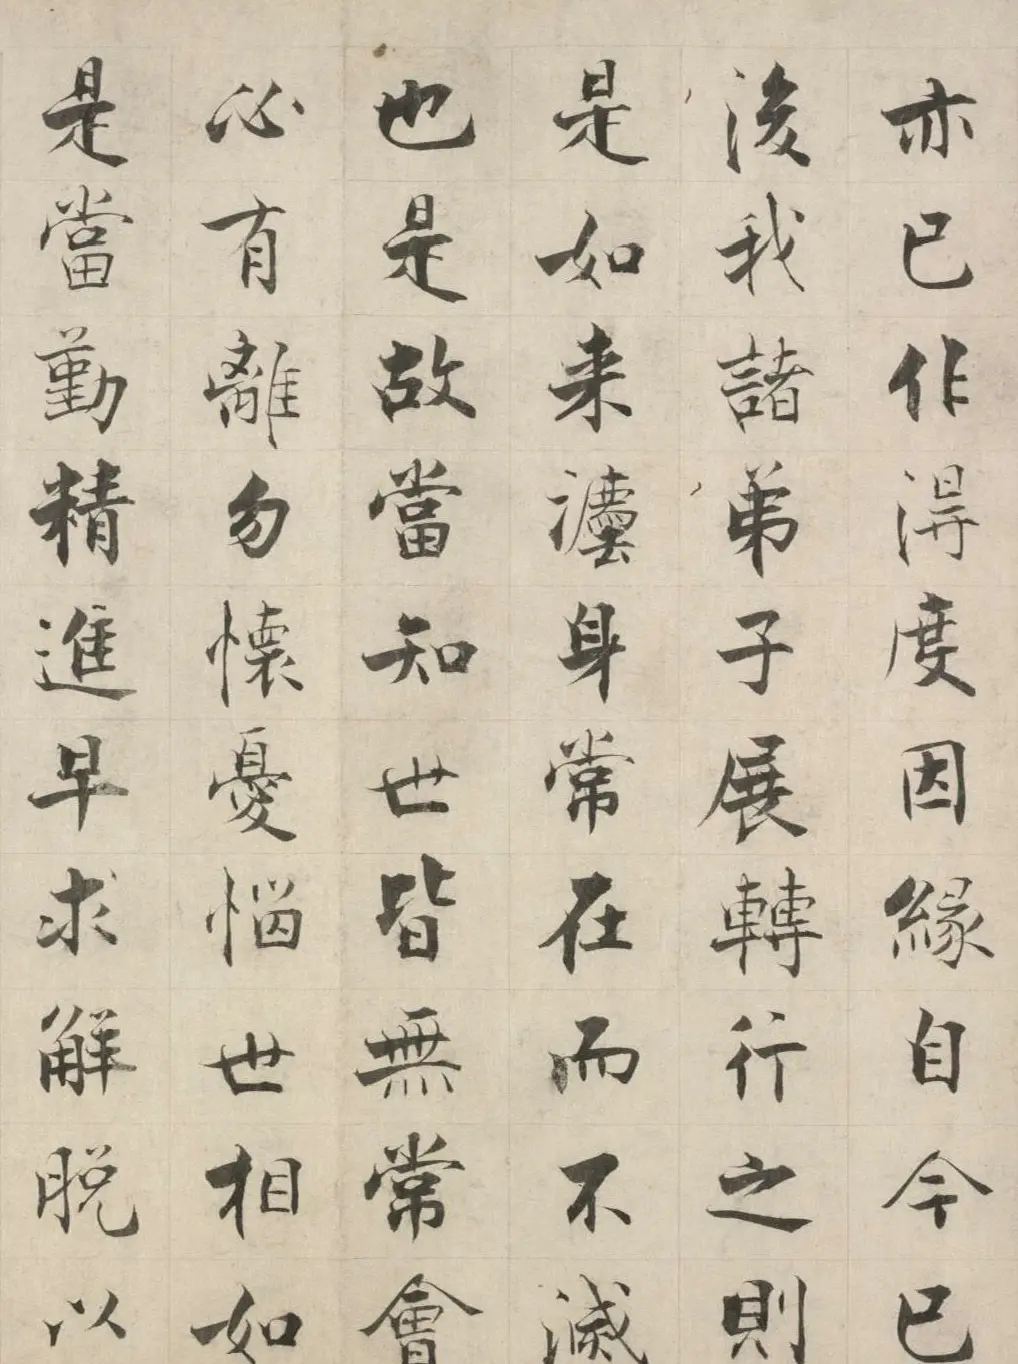 亦已作得度因緣自今已
後我諸弟子展轉行之則
是如来法身常在而不滅
也是故當知世皆無常會
必有離勿懷憂惱世相如
是當勤精進早求解脱以